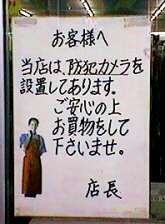 お客様へ
当店は、防犯カメラを
設置してあります。
ご安心の上
お買物をして
下さいませ。
店長